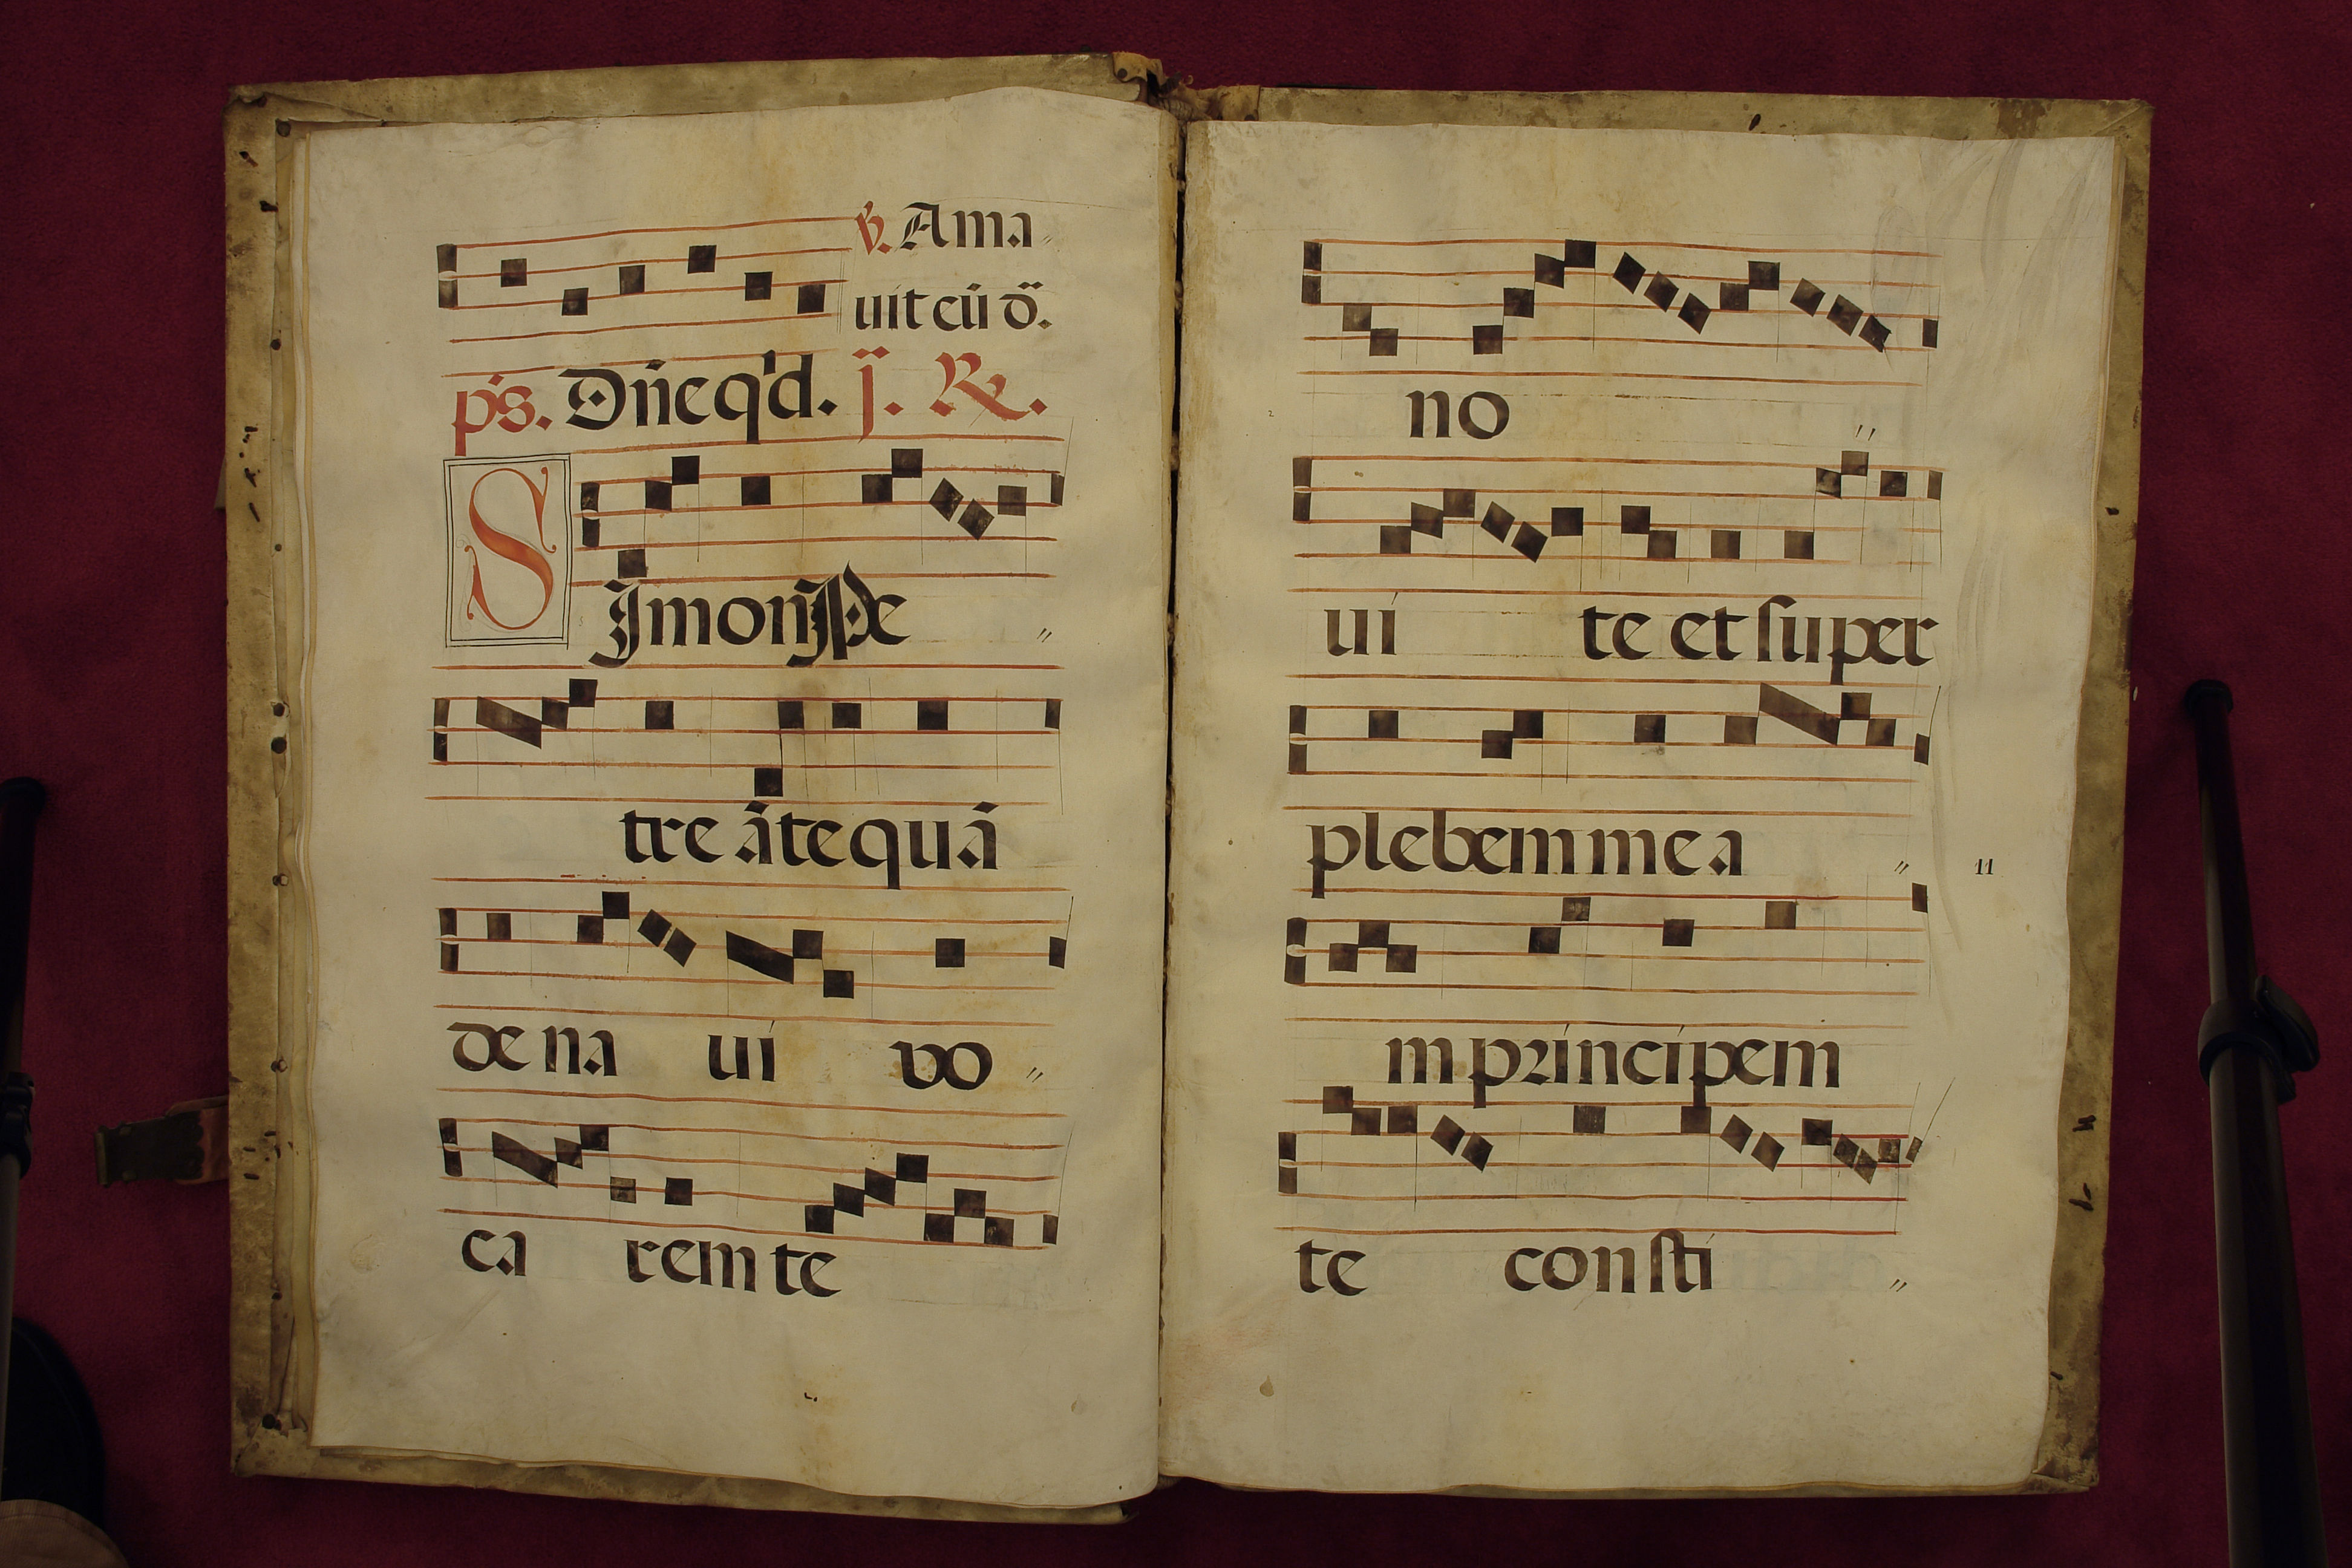 ꝟ. Ama
uit eũ dñ̄.
ps. Dñe q'd. j. ℟.
SJmon Pe
tre ãte quã
de na ui vo
ca rem te
no
ui te et super
plebem mea
11
m principem
te consti